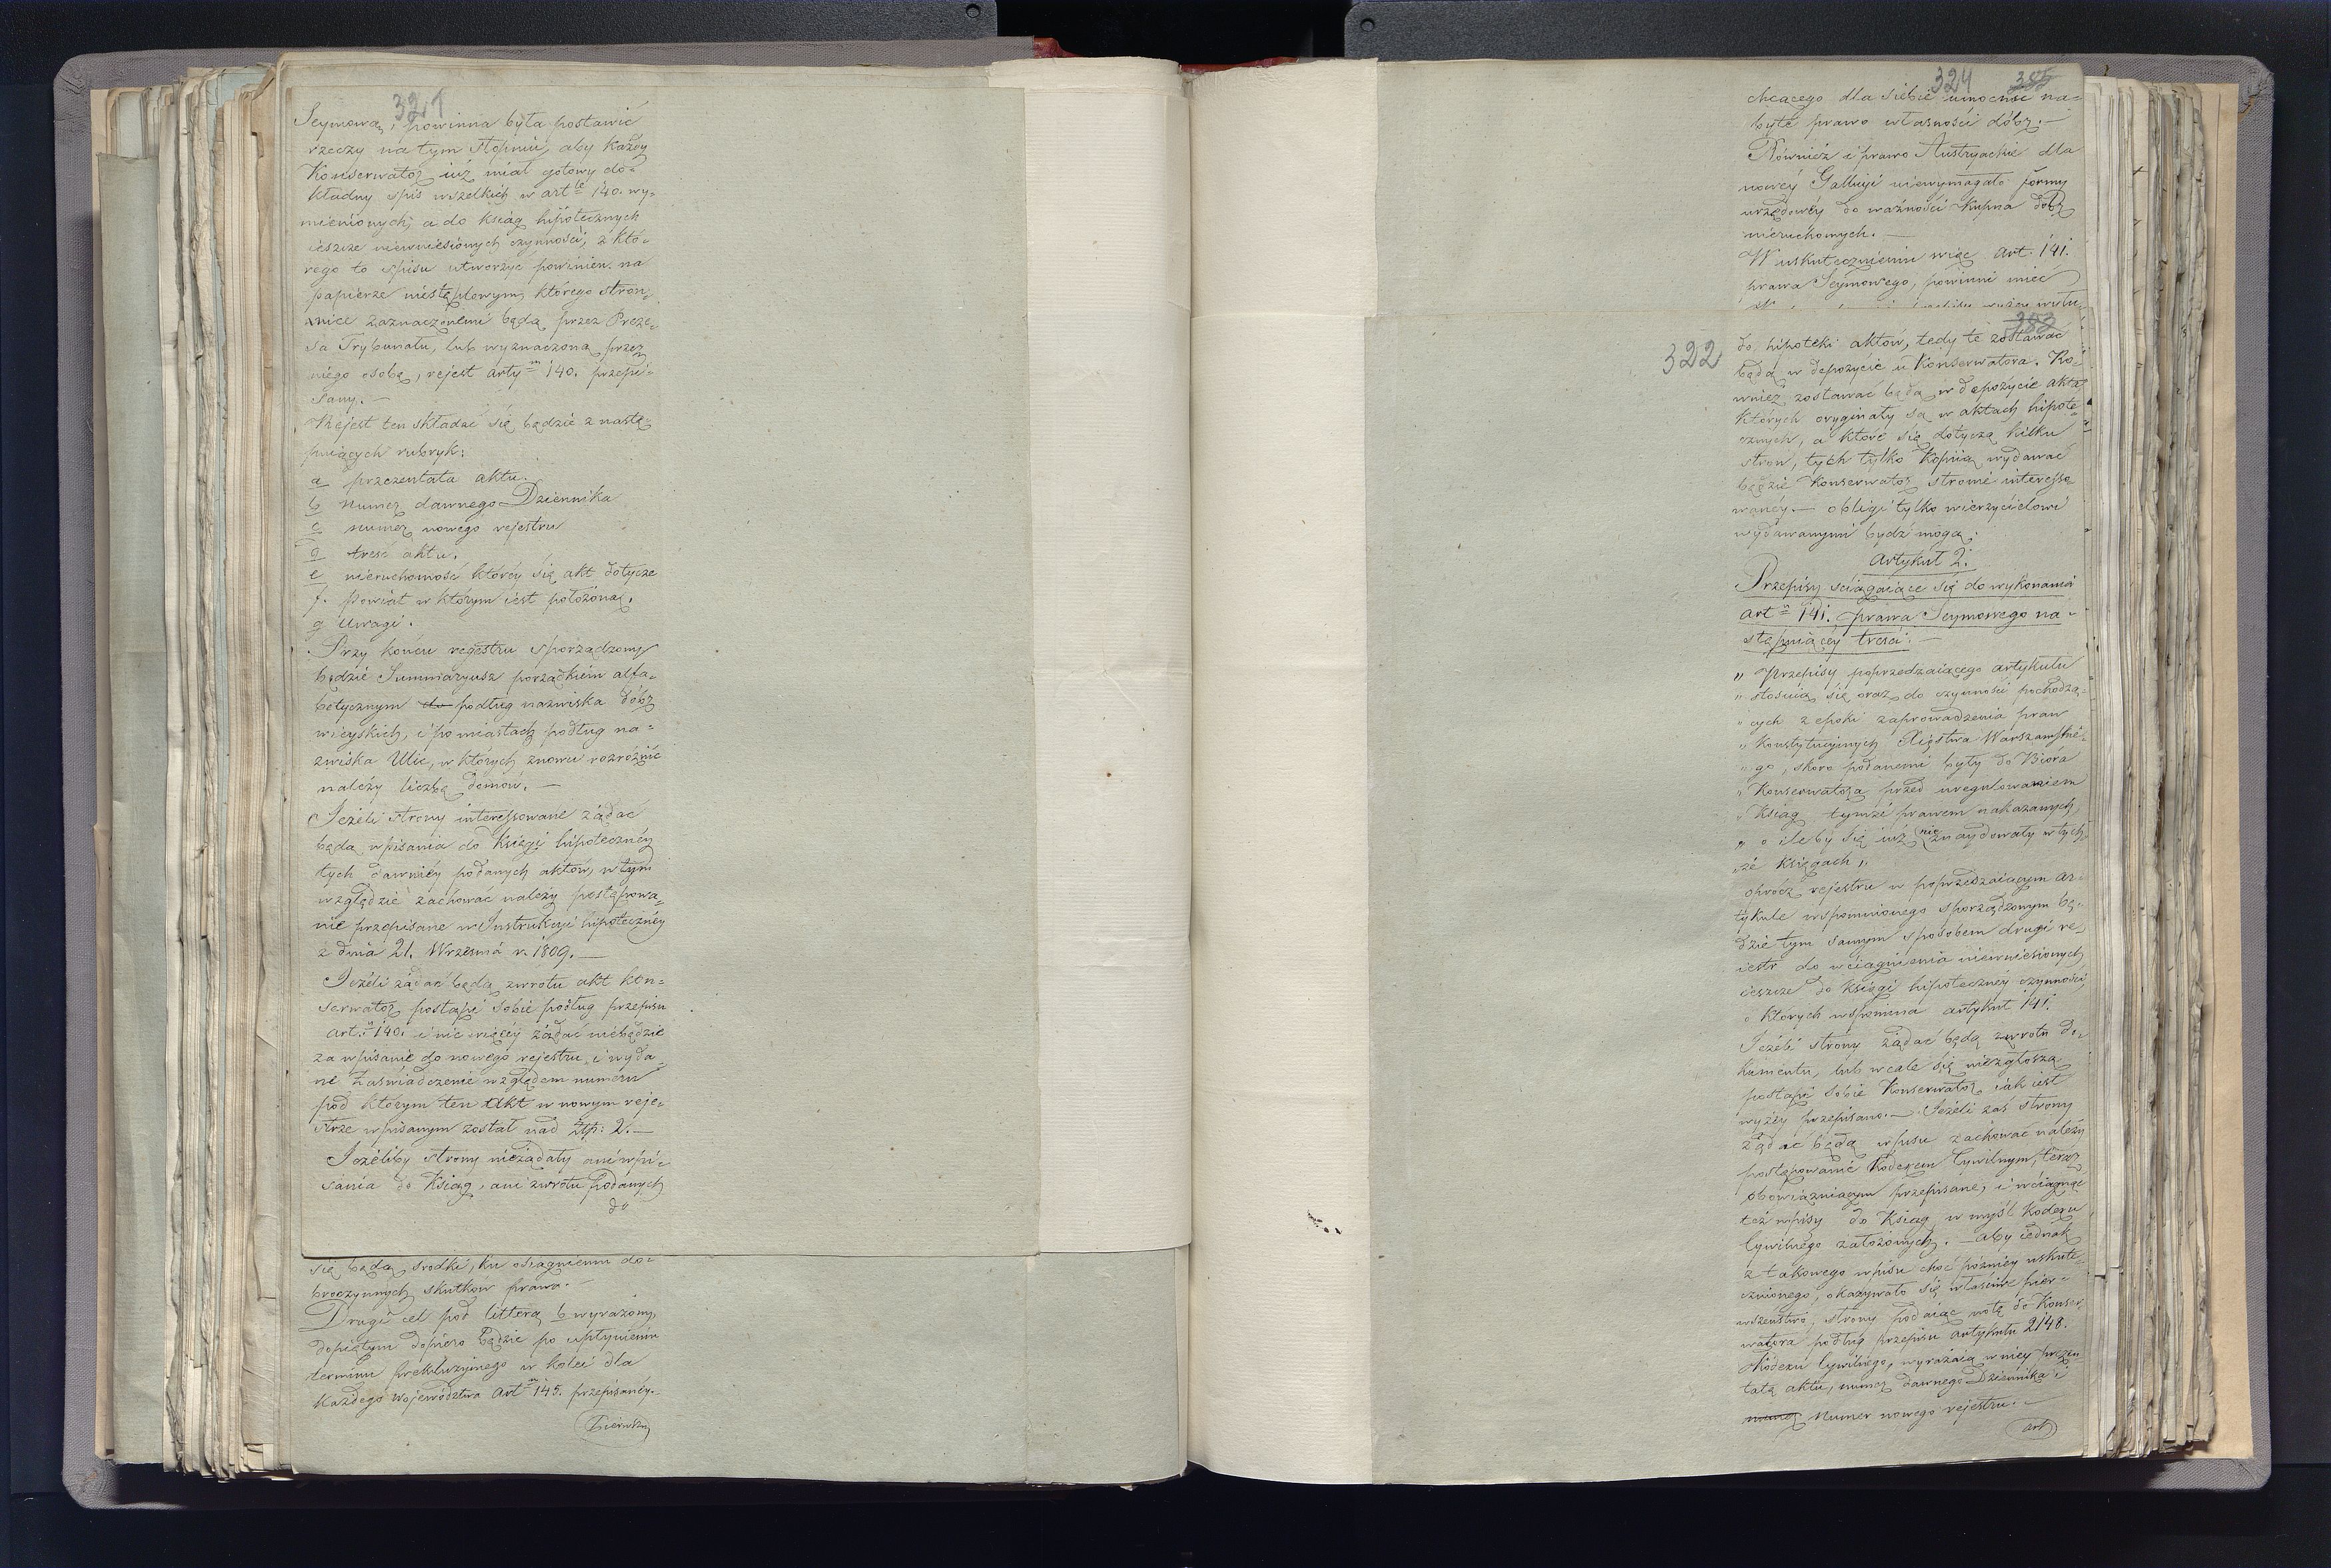 321
Seymową, powinna była postawić
rzeczy na tym stopniu, aby każdy
Konserwator iuż miał gotowy do=
kładny spis wszelkich w artle 140. wy=
mienionych, a do ksiąg hipotecznych
ieszcze niewniesionych czynności, z któ=
rego to spisu utworzyć powinien na
papierze niestęplowym, którego stron=
nice zaznaczonemi będą przez Preze=
sa Trybunału, lub wyznaczoną przez
niego osobę, rejest artym 140. przepi=
sany. —
Rejest ten składać się będzie z nastę=
puiących rubryk:
a prezentata aktu.
b numer dawnego Dziennika
c numer nowego rejestru
d treść aktu.
e nieruchomość którey się akt dotycze
f. Powiat w którym iest położona.
g Uwagi.
Przy końcu regestru sporządzony
będzie Summaryusz porządkiem alfa=
betycznym do podług nazwiska dóbr
wieyskich, i po miastach podług na=
zwiska Ulic, w których znowu rozróżnić
należy liczbę domów. —
Jeżeli strony interessowane żądać
będą wpisania do Księgi hipoteczney
tych dawniey podanych aktów, w tym
względzie zachować należy postępowa=
nie przepisane w Instrukcyi hipoteczney
z dnia 21. Września r. 1809. —
Jeżeli żądać będą zwrotu akt kon=
serwator postąpi sobie podług przepisu
art. 140. i nic więcey żądać niebędzie
za wpisanie do nowego rejestru, i wyda=
ne zaświadczenie względem numeru
pod którym ten akt w nowym reje=
strze wpisanym został nad Złp: 2. —
Jeżeliby strony nieżądały ani wpi=
sania do Ksiąg, ani zwrotu podanych
do
się będą srodki, ku osiągnieniu do=
broczynnych skutków prawa. —
Drugi cel pod litterą b wyrażony,
dopiętym dopiero będzie po upłynieniu
terminu prekluzyinego w kolei dla
każdego Województwa artm 145. przepisaney. —
Pierwszy
324 385
chcącego dla siebie umocnić na=
byte prawo własności dóbr. —
Również i prawo Austryackie dla
nowey Gallicyi niewymagało formy
urzędowey do ważności kupna dóbr
nieruchomych. —
W uskutecznieniu więc art. 141.
prawa Seymowego, powinni mieć
383
322
do hipoteki aktów, tedy te zostawać
będą w depozycie u Konserwatora. Ró=
wnież zostawać będą w depozycie akta
których oryginały są w aktach hipote=
cznych, a które się dotyczą kilku
stron, tych tylko kopiią wydawać
będzie Konserwator stronie interesso
waney. — obligi tylko wierzycielowi
wydawanymi bydź mogą.
Artykuł 2.
Przepisy sciągaiące się do wykonania
art. 141. prawa Seymowego na=
stępuiącey treści. —
„ Przepisy poprzedzaiącego artykułu
„ stosuią się oraz do czynności pochodzą=
„ cych z epoki zaprowadzenia praw
„ Konstytucyinych Xięstwa Warszawskie=
„ go, skoro podanemi były do Bióra
„ Konserwatora przed uregulowaniem
„ Ksiąg tymże prawem nakazanych,
„ o ileby się iuż nie znaydowały w tych
„ że księgach „
oprócz rejestru w poprzedzaiącym ar=
tykule wspomnionego sporządzonym bę=
dzie tym samym sposobem drugi re=
iestr do wciągnienia niewniesionych
ieszcze do Księgi hipoteczney czynności,
o których wspomina artykuł 141.
Jeżeli strony żądać będą zwrotu do=
kumentu, lub wcale się niezgłoszą
postąpi sobie Konserwator, iak iest
wyżey przepisano. — Jeżeli zaś strony
żądać będą wpisu zachować należy
postępowanie Kodexem Cywilnym, teraz
obowiązuiącym przepisane, i wciągnąć
też wpisy do Ksiąg w myśl Kodexu
Cywilnego założonych. — aby iednak
z takowego wpisu choć pózniey uskute=
cznionego, okazywało się właściwe pier=
wszeństwo, strony podaiąc notę do Konser
watora podług przepisu artykułu 2148.
Kodexu Cywilnego, wyrażaią w niey prezen
tatę aktu, numer dawnego Dziennika i
numer numer nowego rejestru. —
art